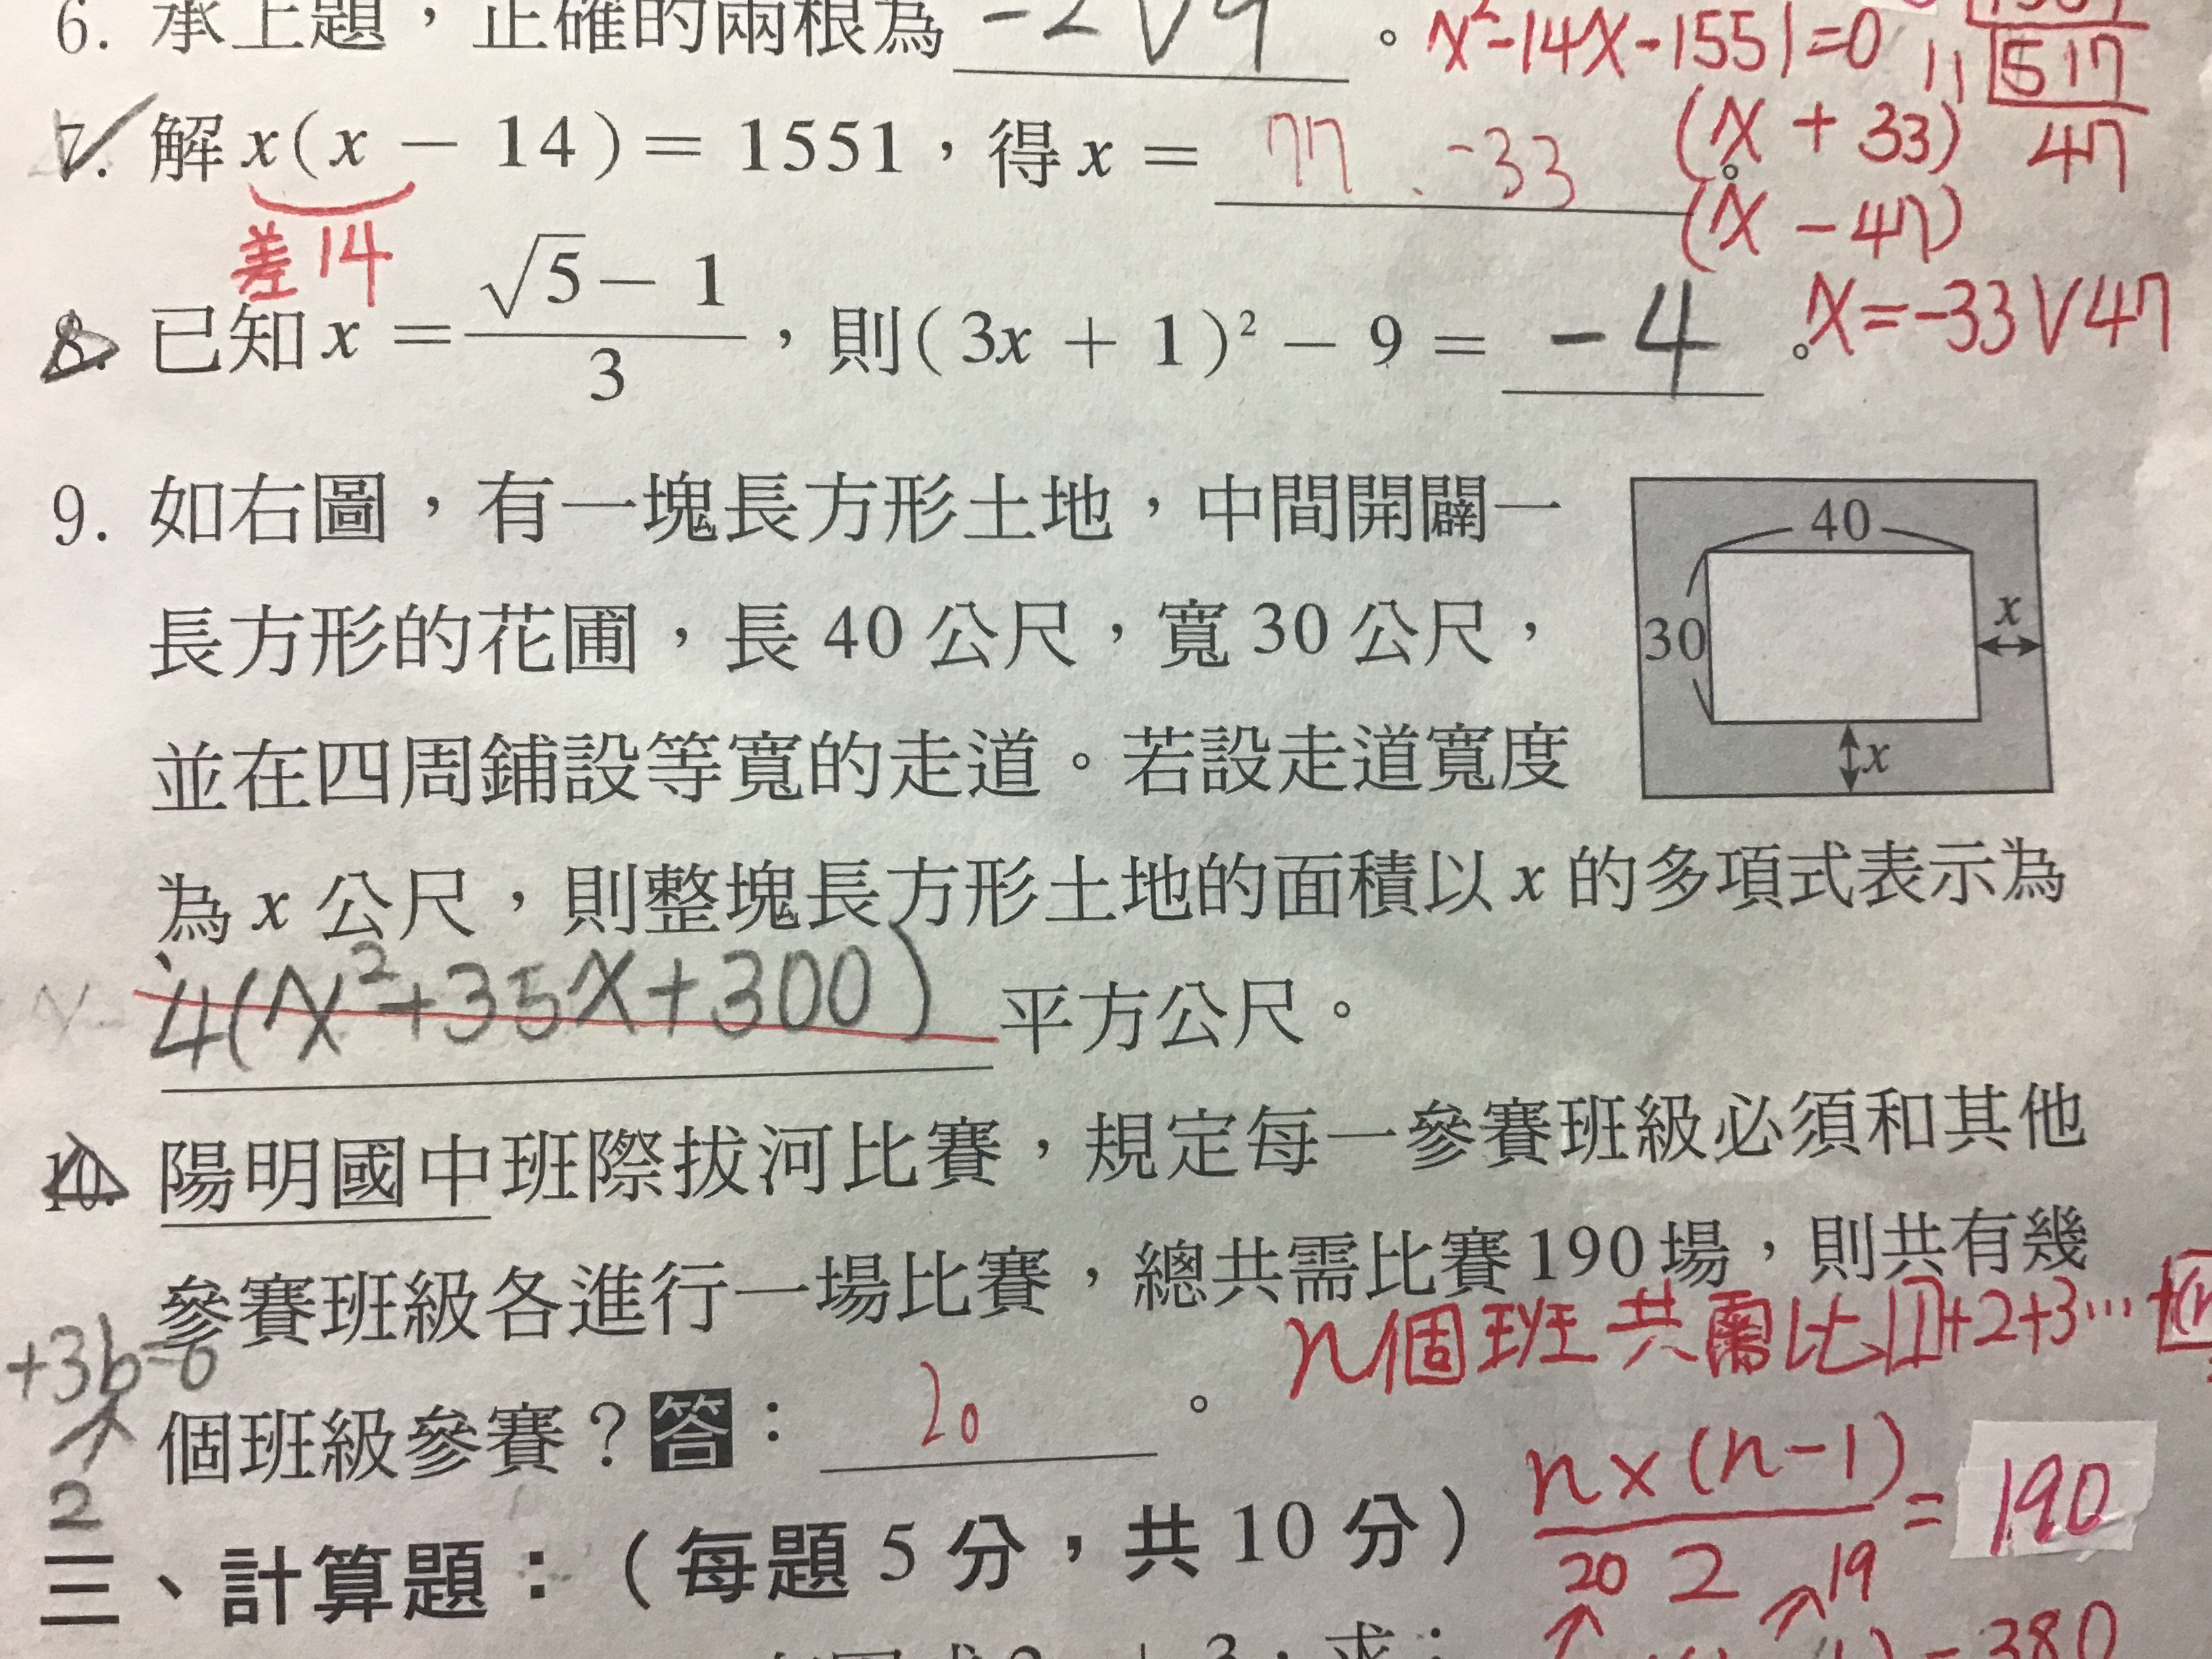 6. 承上題，正確的兩根為 -2∨9 。
x²-14x-1551=0
11 517
47
7. 解 x(x − 14) = 1551，得 x = 77、-33 。
(x + 33)
(x - 47)
差14
x=-33∨47
8. 已知 x = (√5 − 1)/3，則(3x + 1)² − 9 = -4 。
9. 如右圖，有一塊長方形土地，中間開闢一
長方形的花圃，長 40 公尺，寬 30 公尺，
並在四周鋪設等寬的走道。若設走道寬度
為 x 公尺，則整塊長方形土地的面積以 x 的多項式表示為
4(x²+35x+300) 平方公尺。
40
30
x
x
10. 陽明國中班際拔河比賽，規定每一參賽班級必須和其他
參賽班級各進行一場比賽，總共需比賽 190 場，則共有幾
n個班共需比1+2+3…+
+3b-6
個班級參賽？答： 20 。
2
n×(n-1)/2 = 190
20 19
三、計算題：（每題 5 分，共 10 分）
380
求：